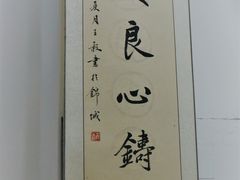 良心鑄
夏月王毅書於錦城